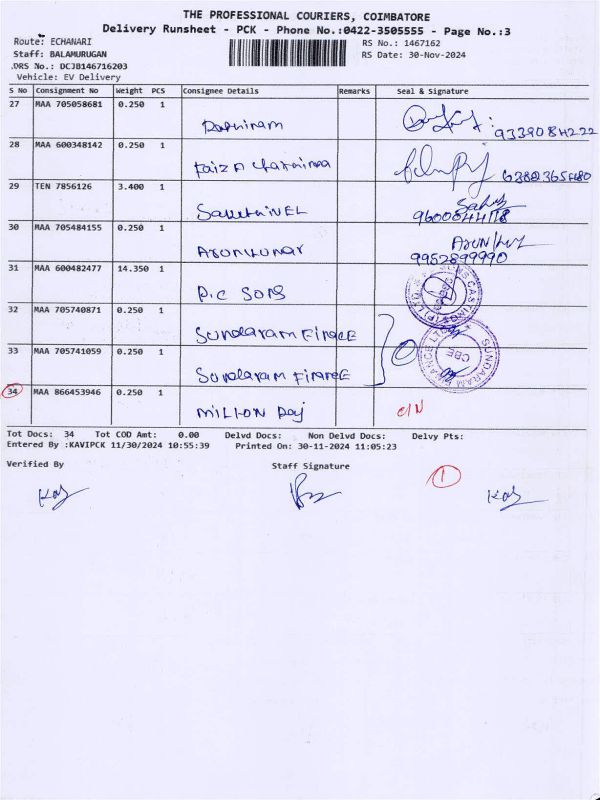 THE PROFESSIONAL COURIERS, COIMBATORE
Delivery Runsheet - PCK - Phone No.:0422-3505555 - Page No.:3
Route: ECHANARI
RS No.: 1467162
Staff: BALAMURUGAN
RS Date: 30-Nov-2024
DRS No.: DCJB146716203
Vehicle: EV Delivery
S No Consignment No Weight PCS Consignee Details Remarks Seal & Signature
27 MAA 705058681 0.250 1
28 MAA 600348142 0.250 1
29 TEN 7856126 3.400 1
9600644118
30 MAA 705484155 0.250 1 Arunkumar
9952899990
31 MAA 600482477 14.350 1 P.C SONS
32 MAA 705740871 0.250 1 Sundaram Finance
33 MAA 705741059 0.250 1 Sundaram Finance
SUNDARAM
CBE
34 MAA 866453946 0.250 1 Million Raj C/N
Tot Docs: 34 Tot COD Amt: 0.00 Delvd Docs: Non Delvd Docs: Delvy Pts:
Entered By :KAVIPCK 11/30/2024 10:55:39 Printed On: 30-11-2024 11:05:23
Verified By Staff Signature
1